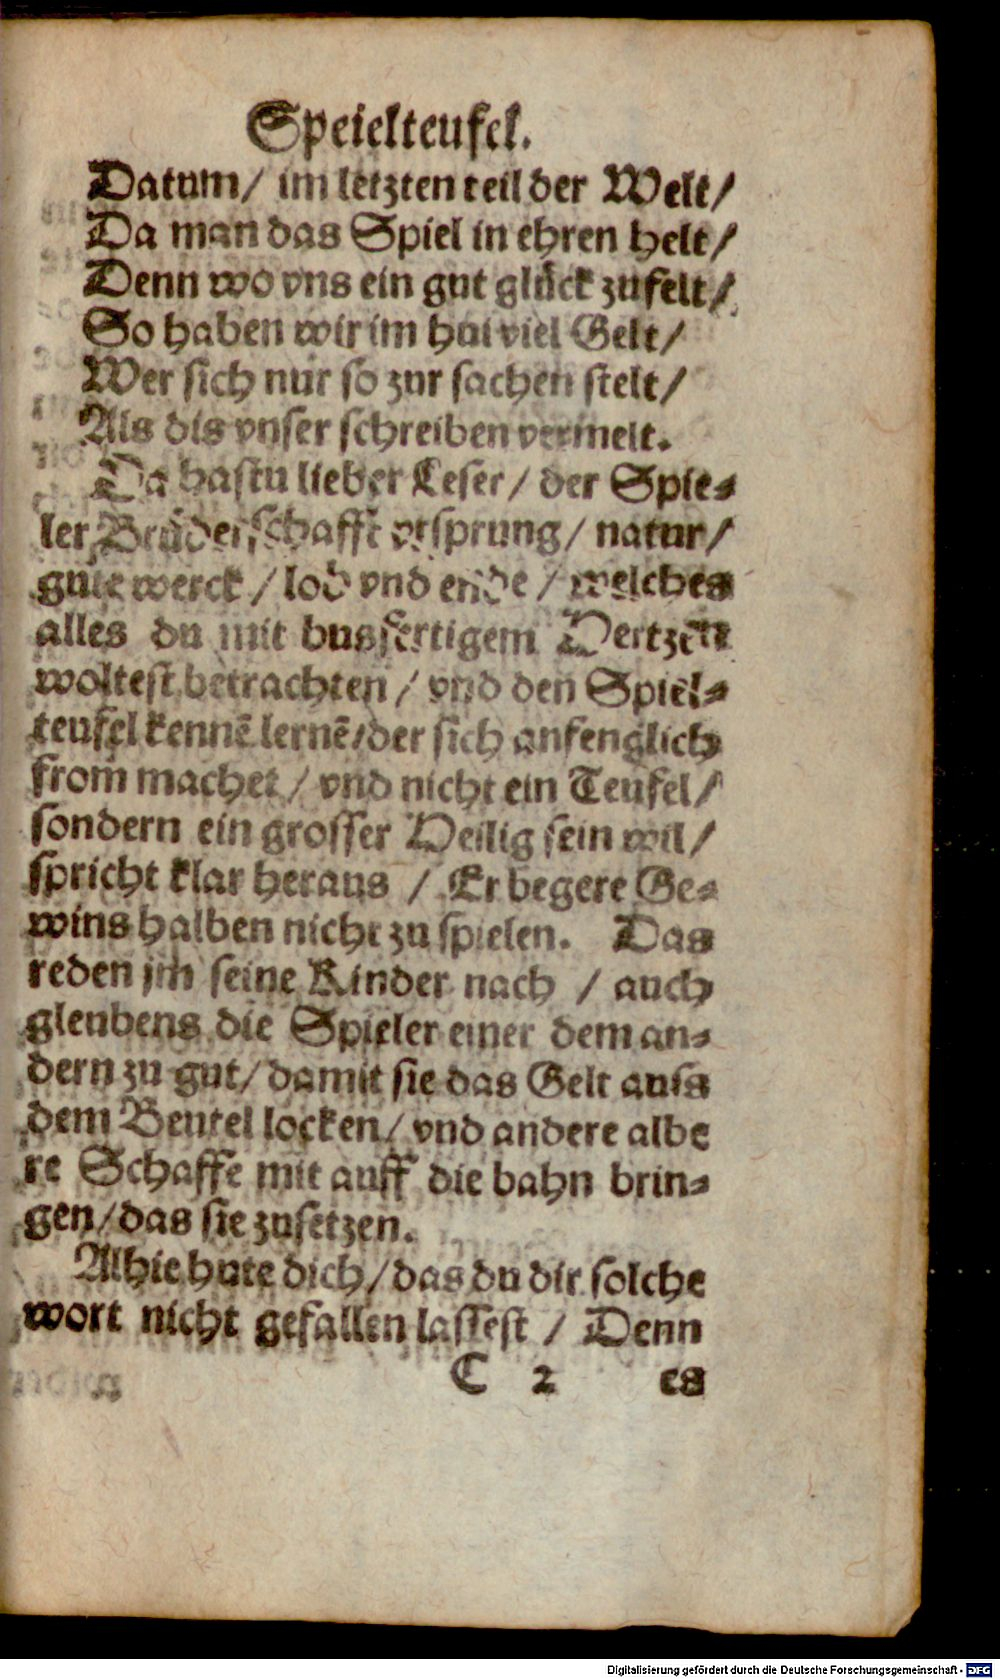 Speielteufel.
Datum/ im letzten teil der Welt/
Da man das Spiel in ehren helt/
Denn wo vns ein gut glück zufelt/
So haben wir im hui viel Gelt/
Wer sich nur so zur sachen stelt/
Als dis vnser schreiben vermelt.
Da hastu lieber Leser/ der Spie-
ler Brüderschafft vrsprung/ natur/
gute werck/ lob vnd ende/ welches
alles du mit busfertigem Hertzen
woltest betrachten/ vnd den Spiel-
teufel kennē lernē/ der sich anfenglich
from machet/ vnd nicht ein Teufel/
sondern ein grosser Heilig sein wil/
spricht klar heraus/ Er begere Ge-
wins halben nicht zu spielen. Das
reden jm seine Kinder nach/ auch
gleubens die Spieler einer dem an-
dern zu gut/ damit sie das Gelt auss
dem Beutel locken/ vnd andere albe
re Schaffe mit auff die bahn brin-
gen/ das sie zusetzen.
Alhie hute dich/ das du dir solche
wort nicht gefallen lassest/ Denn
C 2 es
Digitalisierung gefördert durch die Deutsche Forschungsgemeinschaft - DFG